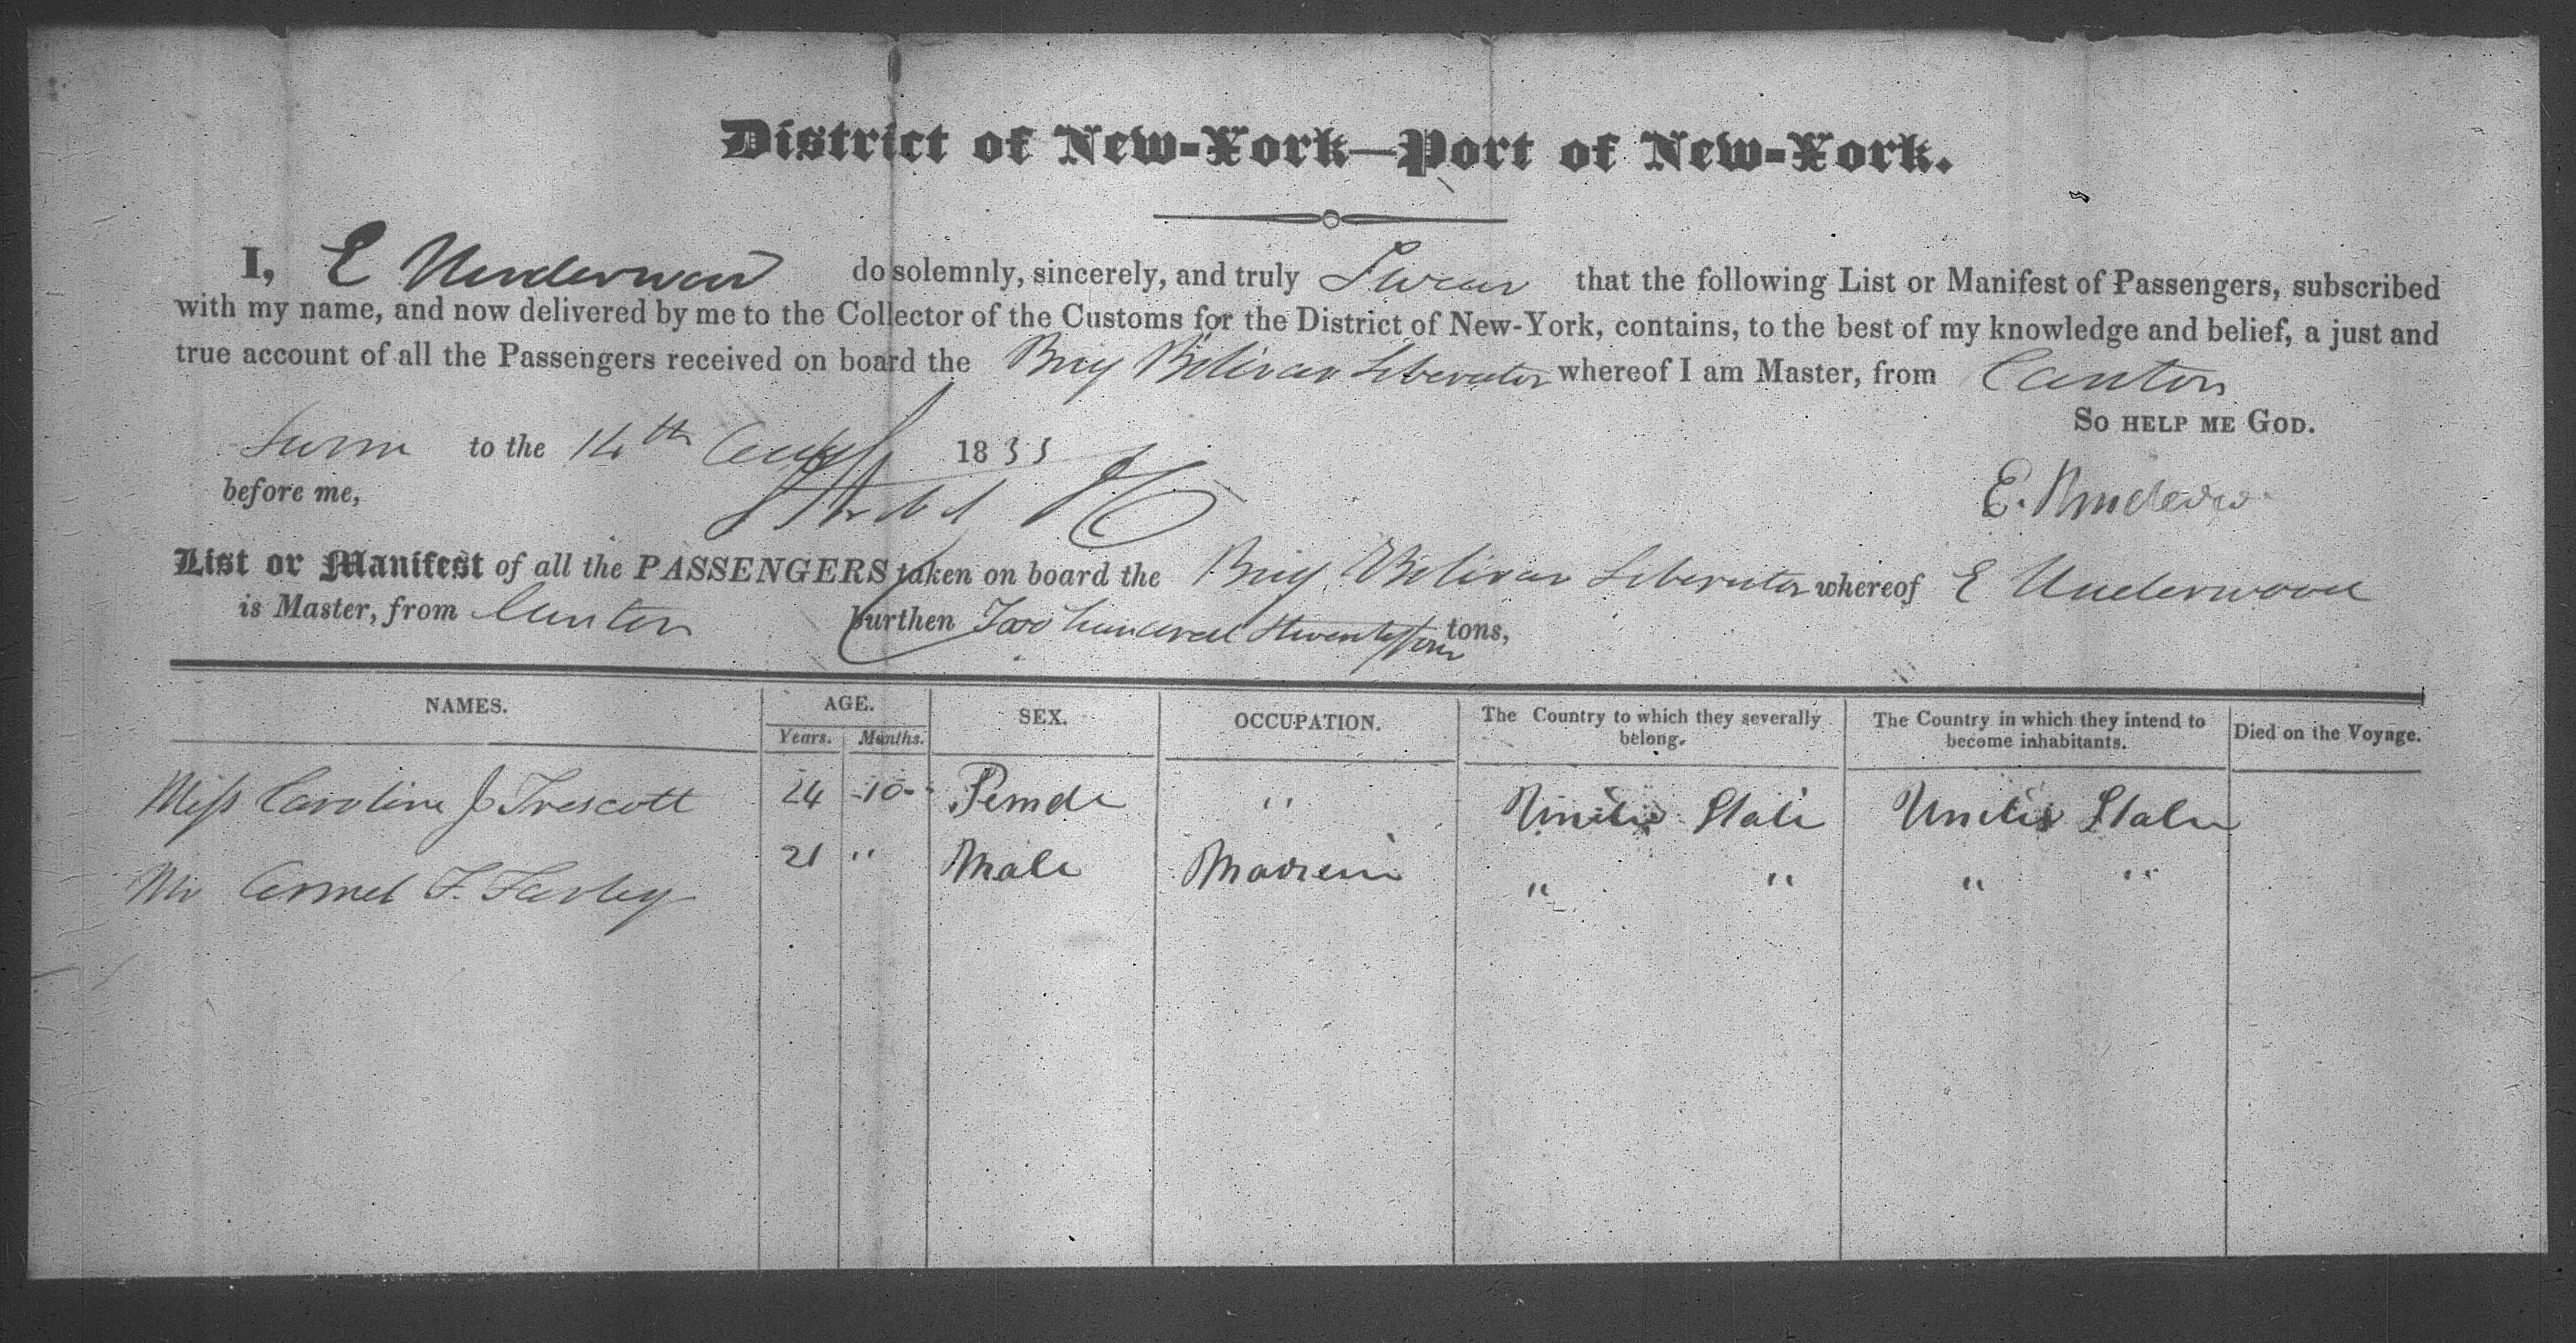 District of New-York—Port of New-York.
I, E Underwood do solemnly, sincerely, and truly Swear that the following List or Manifest of Passengers, subscribed
with my name, and now delivered by me to the Collector of the Customs for the District of New-York, contains, to the best of my knowledge and belief, a just and
true account of all the Passengers received on board the Brig Bolivar Liberator whereof I am Master, from Canton
So help me God.
Sworn to the 14th 1835
before me,
E. Underwood
List or Manifest of all the PASSENGERS taken on board the Brig Bolivar Liberator whereof E Underwood
is Master, from Canton burthen Two hundred & twenty four tons,
NAMES. AGE. SEX. OCCUPATION. The Country to which they severally belong. The Country in which they intend to become inhabitants. Died on the Voyage.
Years. Months.
Miss Caroline J Trescott 24 -10- Female " United State United States
Mr F. Farley 21 " Male " " " "